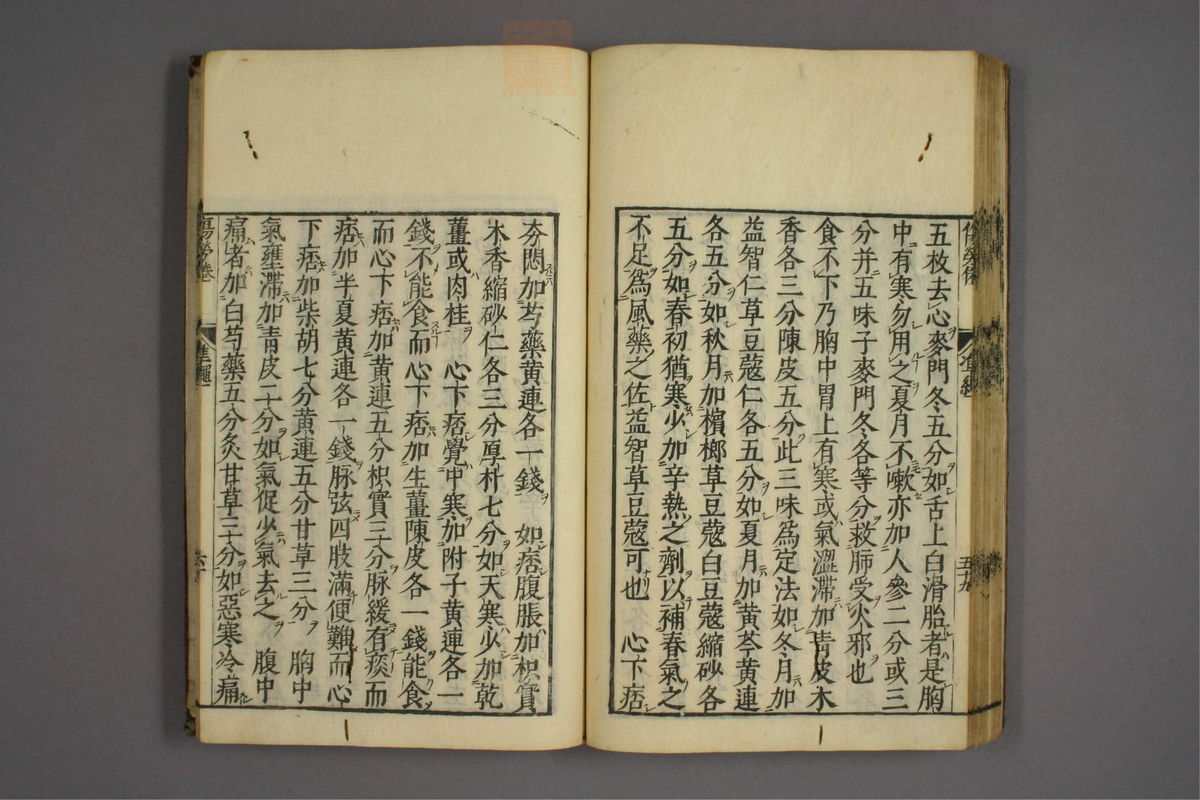 五枚去心麥門冬五分如舌上白滑胎者是胸
中有寒勿用之夏月不嗽亦加人參二分或三
分并五味子麥門冬各等分救肺受火邪也
食不下乃胸中胃上有寒或氣澀滯加青皮木
香各三分陳皮五分此三味爲定法如冬月加
益智仁草豆蔻仁各五分如夏月加黃芩黃連
各五分如秋月加檳榔草豆蔻白豆蔻縮砂各
五分如春初猶寒少加辛熱之劑以補春氣之
不足爲風藥之佐益智草豆蔻可也　心下痞
五十九
夯悶加芍藥黃連各一錢　如痞腹脹加枳實
木香縮砂仁各三分厚朴七分如天寒少加乾
薑或肉桂　心下痞覺中寒加附子黃連各一
錢不能食而心下痞加生薑陳皮各一錢能食
而心下痞加黃連五分枳實三分脉緩有痰而
痞加半夏黃連各一錢脉弦四肢滿便難而心
下痞加柴胡七分黃連五分甘草三分　胸中
氣壅滯加青皮二分如氣促少氣去之　腹中
痛者加白芍藥五分炙甘草三分如惡寒冷痛
傷勞卷
準繩
六十